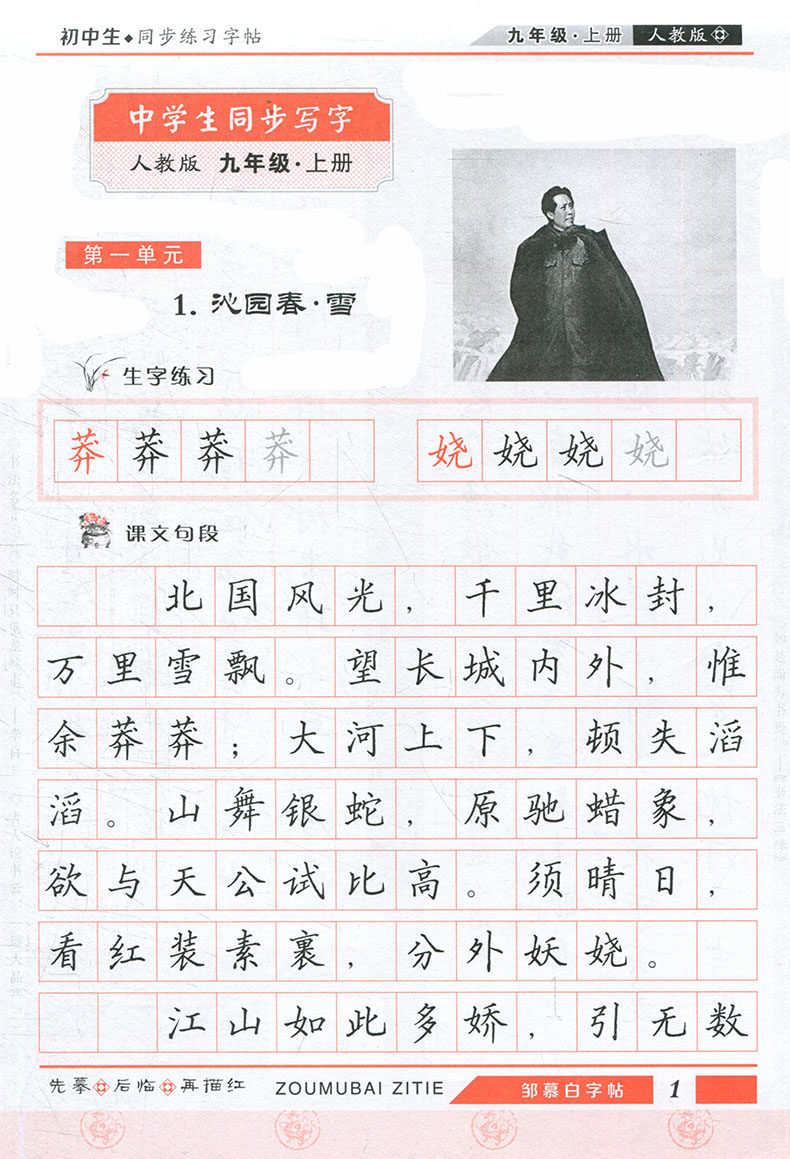 初中生◆同步练习字帖
九年级·上册 人教版
中学生同步写字
人教版 九年级·上册
第一单元
1. 沁园春·雪
生字练习
莽莽莽莽 娆娆娆娆
课文句段
北国风光，千里冰封，
万里雪飘。望长城内外，惟
余莽莽；大河上下，顿失滔
滔。山舞银蛇，原驰蜡象，
欲与天公试比高。须晴日，
看红装素裹，分外妖娆。
江山如此多娇，引无数
先摹 后临 再描红 ZOUMUBAI ZITIE 邹慕白字帖 1